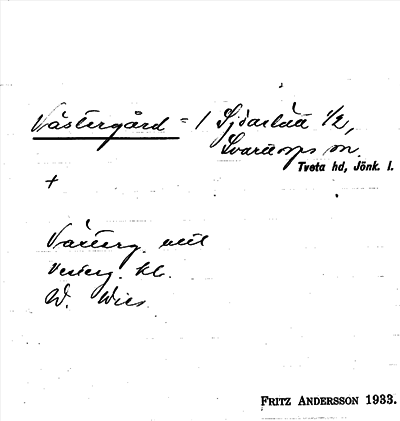 Västergård = 1 Sjöarlid 1/2,
Svarttorps sn.
Tveta hd, Jönk. l.
+
Västerg.
Vesterg. kl.
W.
FRITZ ANDERSSON 1933.